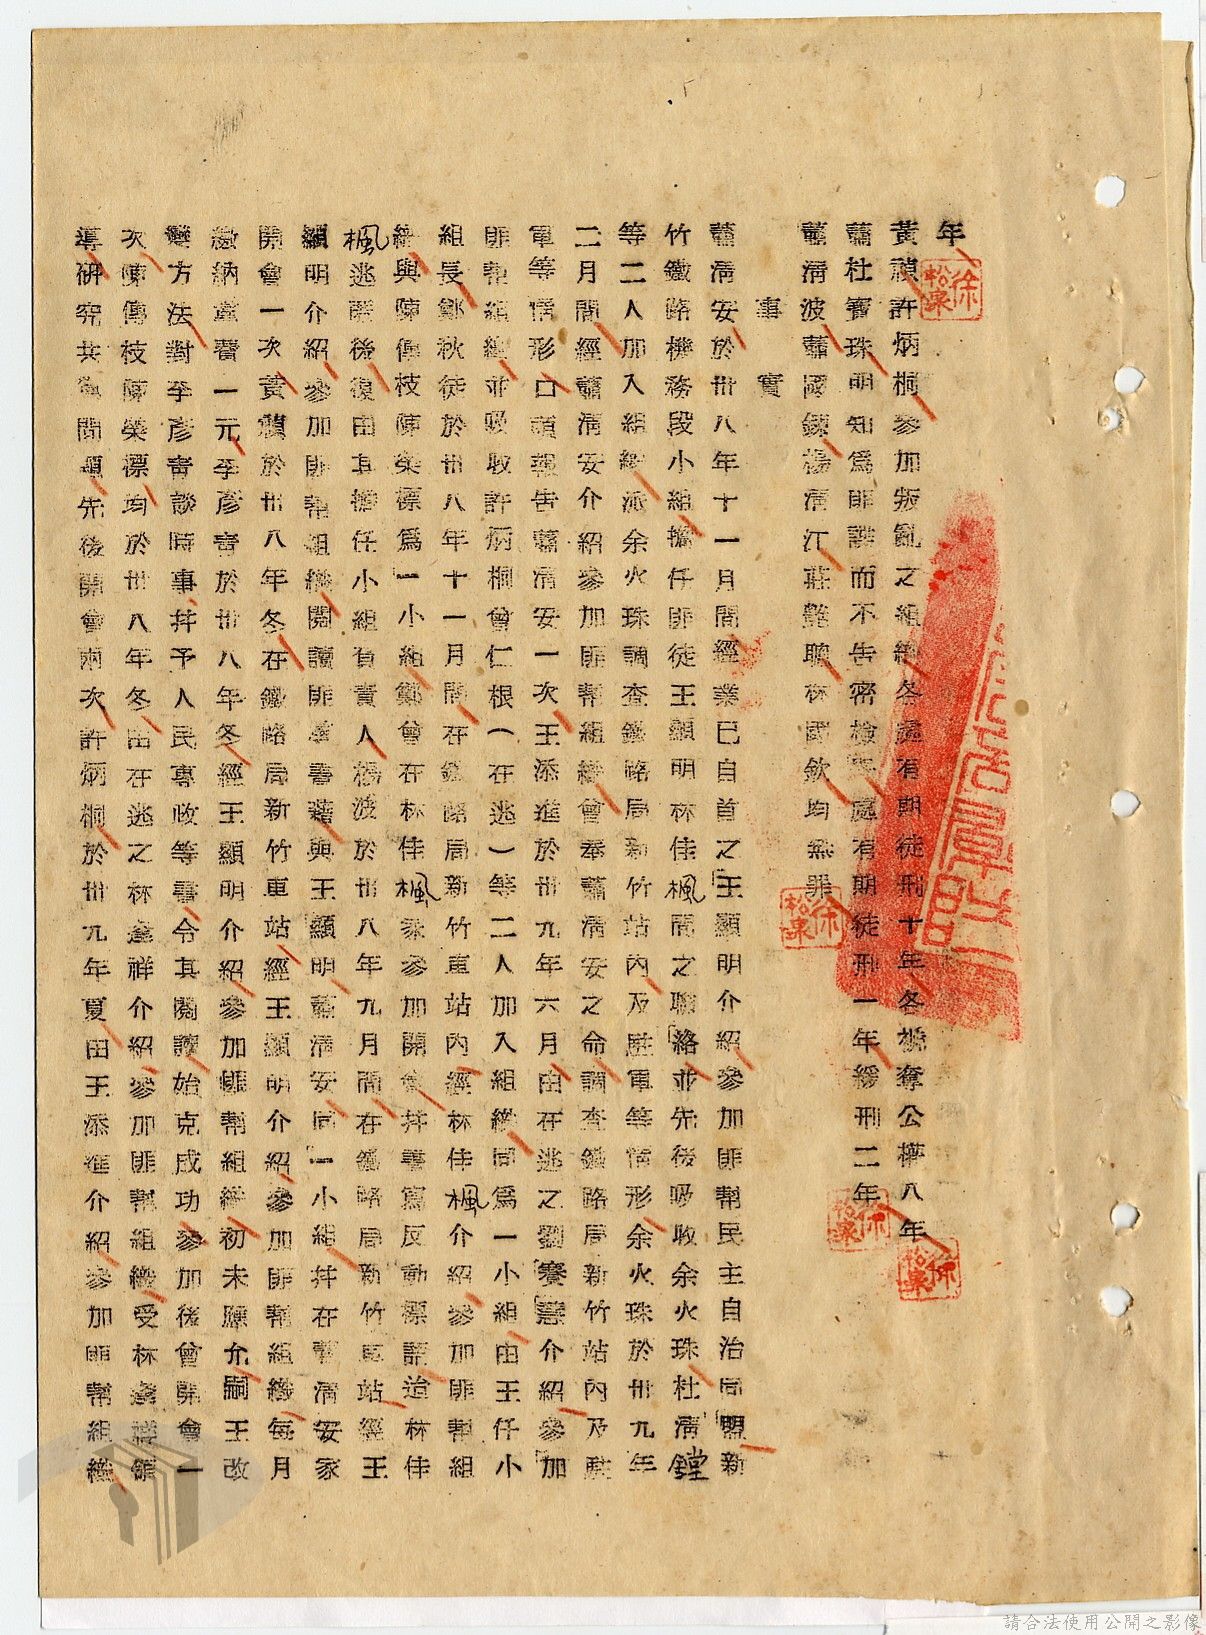 年
黃禎許炳桐參加叛亂之組織各處有期徒刑十年各褫奪公權八年
蕭杜寶珠明知為匪諜而不告密檢舉處有期徒刑一年緩刑二年
蕭清波蕭國鍊楊清江莊艷聰林國欽均無罪
事實
蕭清安於卅八年十一月間經業已自首之王顯明介紹參加匪幫民主自治同盟新
竹鐵路機務段小組擔任匪徒王顯明林佳楓間之聯絡並先後吸收余火珠杜清鏜
等二人加入組織派余火珠調查鐵路局新竹站內及駐軍等情形余火珠於卅九年
二月間經蕭清安介紹參加匪幫組織曾奉蕭清安之命調查鐵路局新竹站內及駐
軍等情形口頭報告蕭清安一次王添進於卅九年六月由在逃之劉賽慧介紹參加
匪幫組織並吸收許炳桐曾仁根（在逃）等二人加入組織同為一小組由王任小
組長鄭秋徒於卅八年十一月間在鐵路局新竹車站內經林佳楓介紹參加匪幫組
織與陳傳枝陳榮標為一小組鄭曾在林佳楓家參加開會并書寫反動標語迨林佳
楓逃匿後復由其擔任小組負責人楊波於卅八年九月間在鐵路局新竹車站經王
顯明介紹參加匪幫組織閱讀匪書書籍與王顯明蕭清安同一小組并在蕭清安家
開會一次黃禎於卅八年冬在鐵路局新竹車站經王顯明介紹參加匪幫組織每月
繳納黨費一元李彥青於卅八年冬經王顯明介紹參加匪幫組織初未應允嗣王改
變方法對李彥青談時事并予人民專收等書令其閱讀始克成功參加後曾開會一
次陳傳枝陳榮標均於卅八年冬由在逃之林鑫祥介紹參加匪幫組織受林鑫祥領
導研究共黨問題先後開會兩次許炳桐於卅九年夏由王添進介紹參加匪幫組織
徐松泉
徐松泉
徐松泉
徐松泉
請合法使用公開之影像